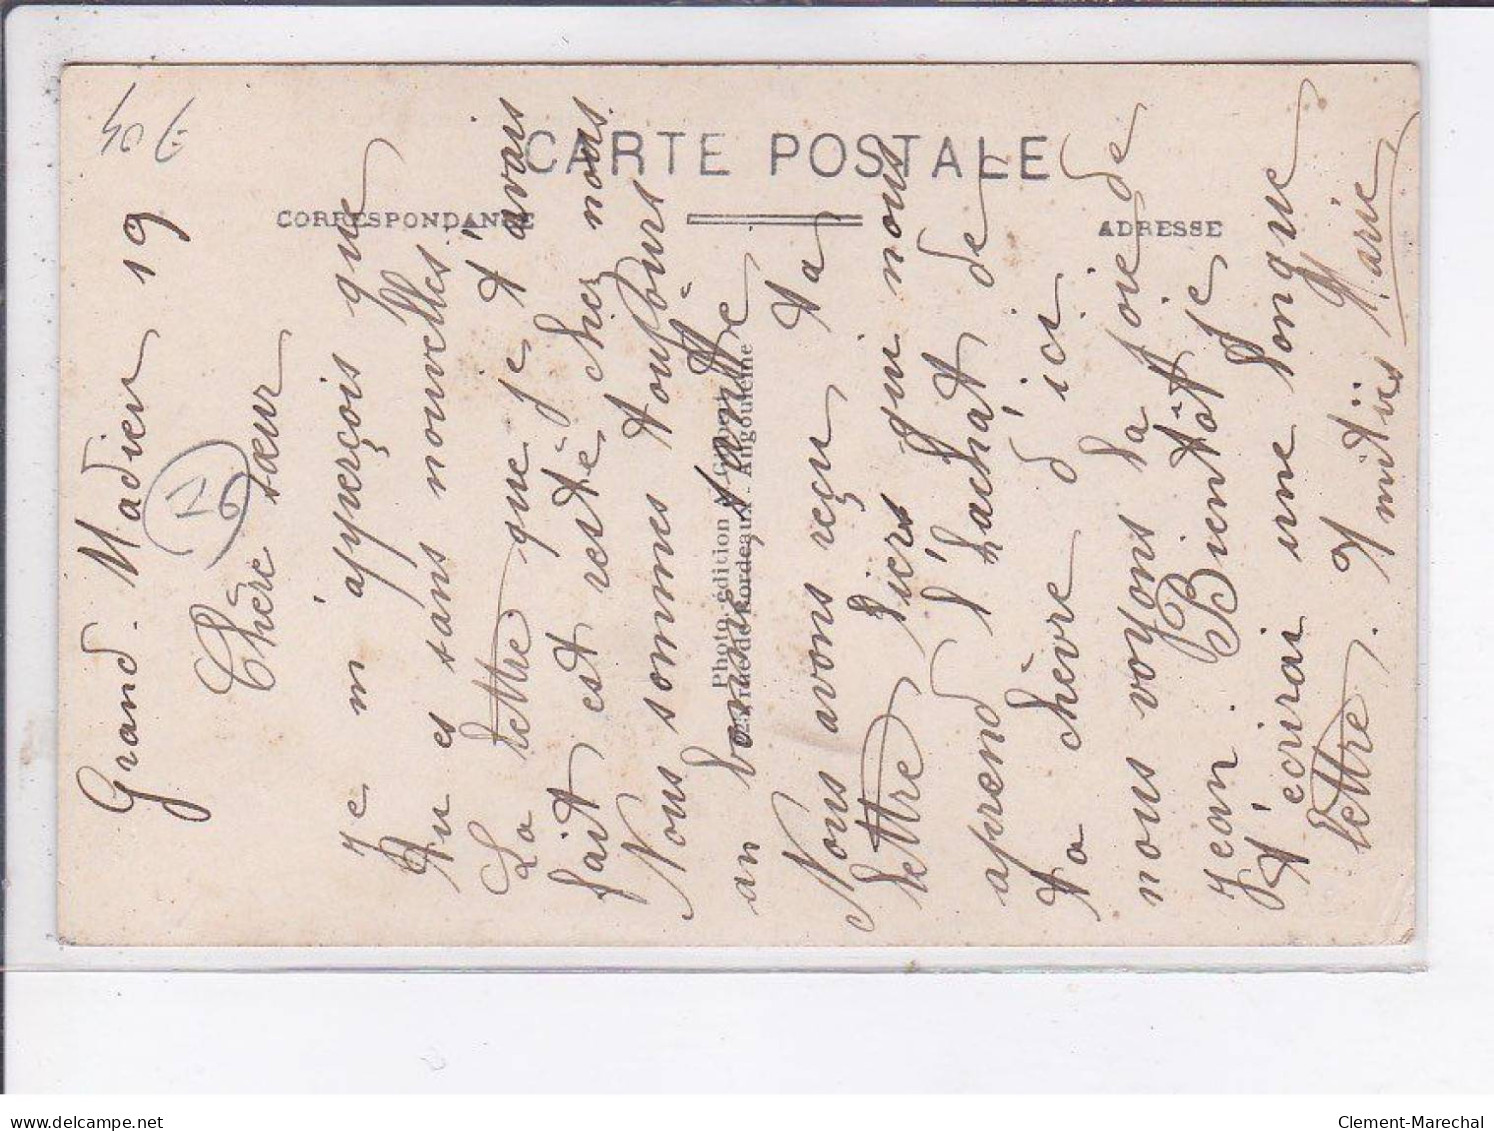 40 €
CARTE POSTALE
CORRESPONDANCE
ADRESSE
Photo édition
rue de Bordeaux - Angoulême
Grand. Madieu 19
12
Chère sœur
Je m'apperçois que
tu es sans nouvelles
La lettre que je t'avais
fait est resté chez nous.
Nous sommes toujours
en bonne santé
Nous avons reçu ta
lettre hiers qui nous
aprend l'achat de
ta chèvre d'ici
nous voyons la joie de
Jean. Bientôt je
t'ecrirai une longue
lettre. Amitiés Marie
delcampe.net
Clement-Marechal